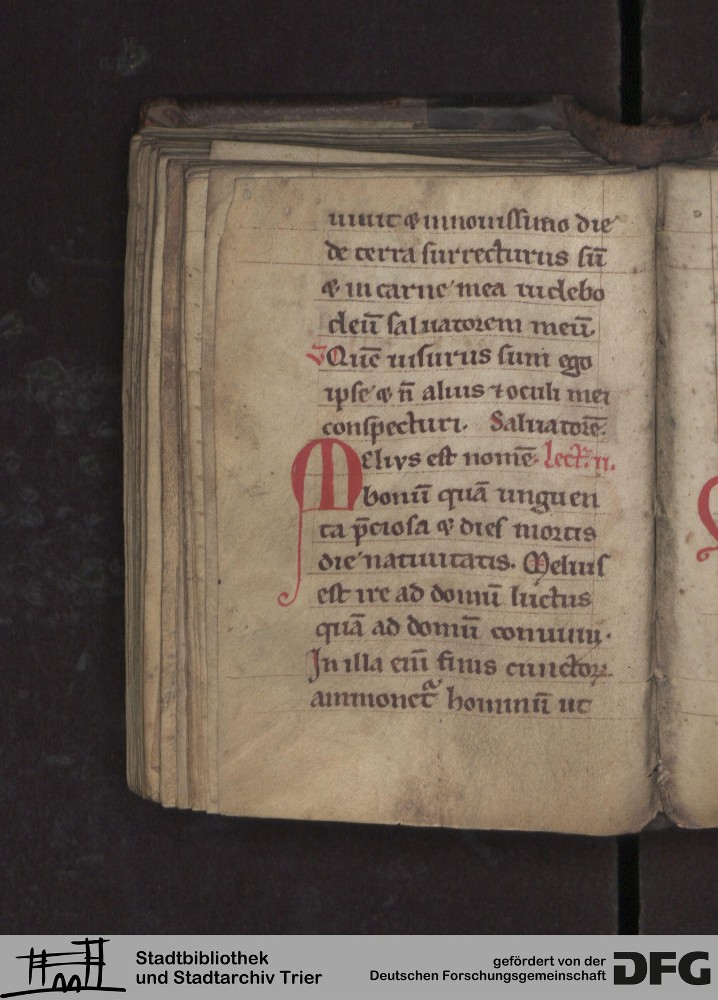 uiuit & in nouissimo die
de terra surrecturus sū
& in carne mea uidebo
deū saluatorem meū
V Quē uisurus sum ego
ipse & n̄ alius & oculi mei
conspecturi. Saluatorē.
MElivs est nomē Lect. II.
bonū quā unguen
ta p̄ciosa & dies mortis
die natiuitatis. Melius
est ire ad domū luctus
quā ad domū conuiuii.
In illa eni finis cunctoꝝ
ammonetᷓ hominū ut
Stadtbibliothek
und Stadtarchiv Trier
gefördert von der
Deutschen Forschungsgemeinschaft
DFG